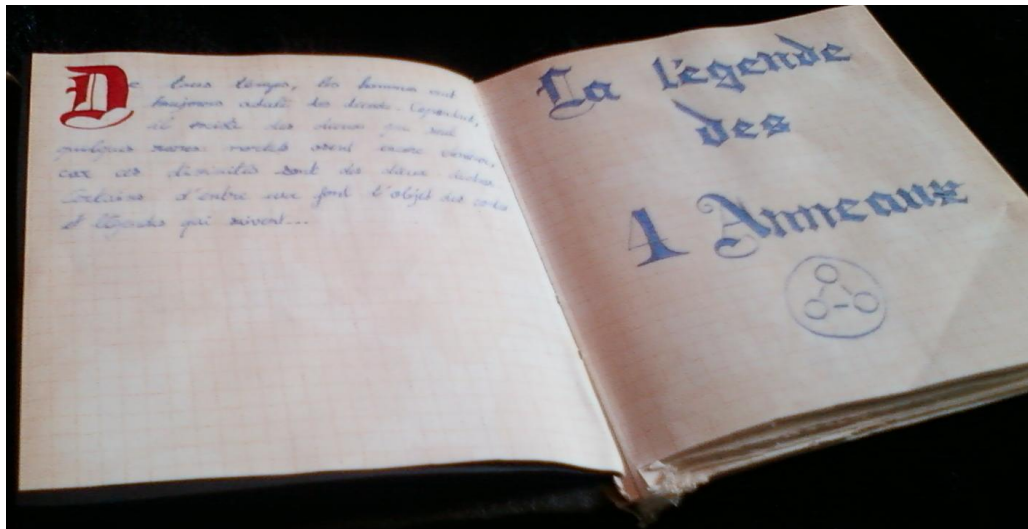 De tous temps, les hommes ont
toujours adulé les dieux. Cependant,
il existe des dieux que seul
quelques rares mortels osent encore vénérer,
car ces divinités sont des dieux
Certains d'entre eux font l'objet des contes
et légendes qui suivent...
La légende
des
4 Anneaux